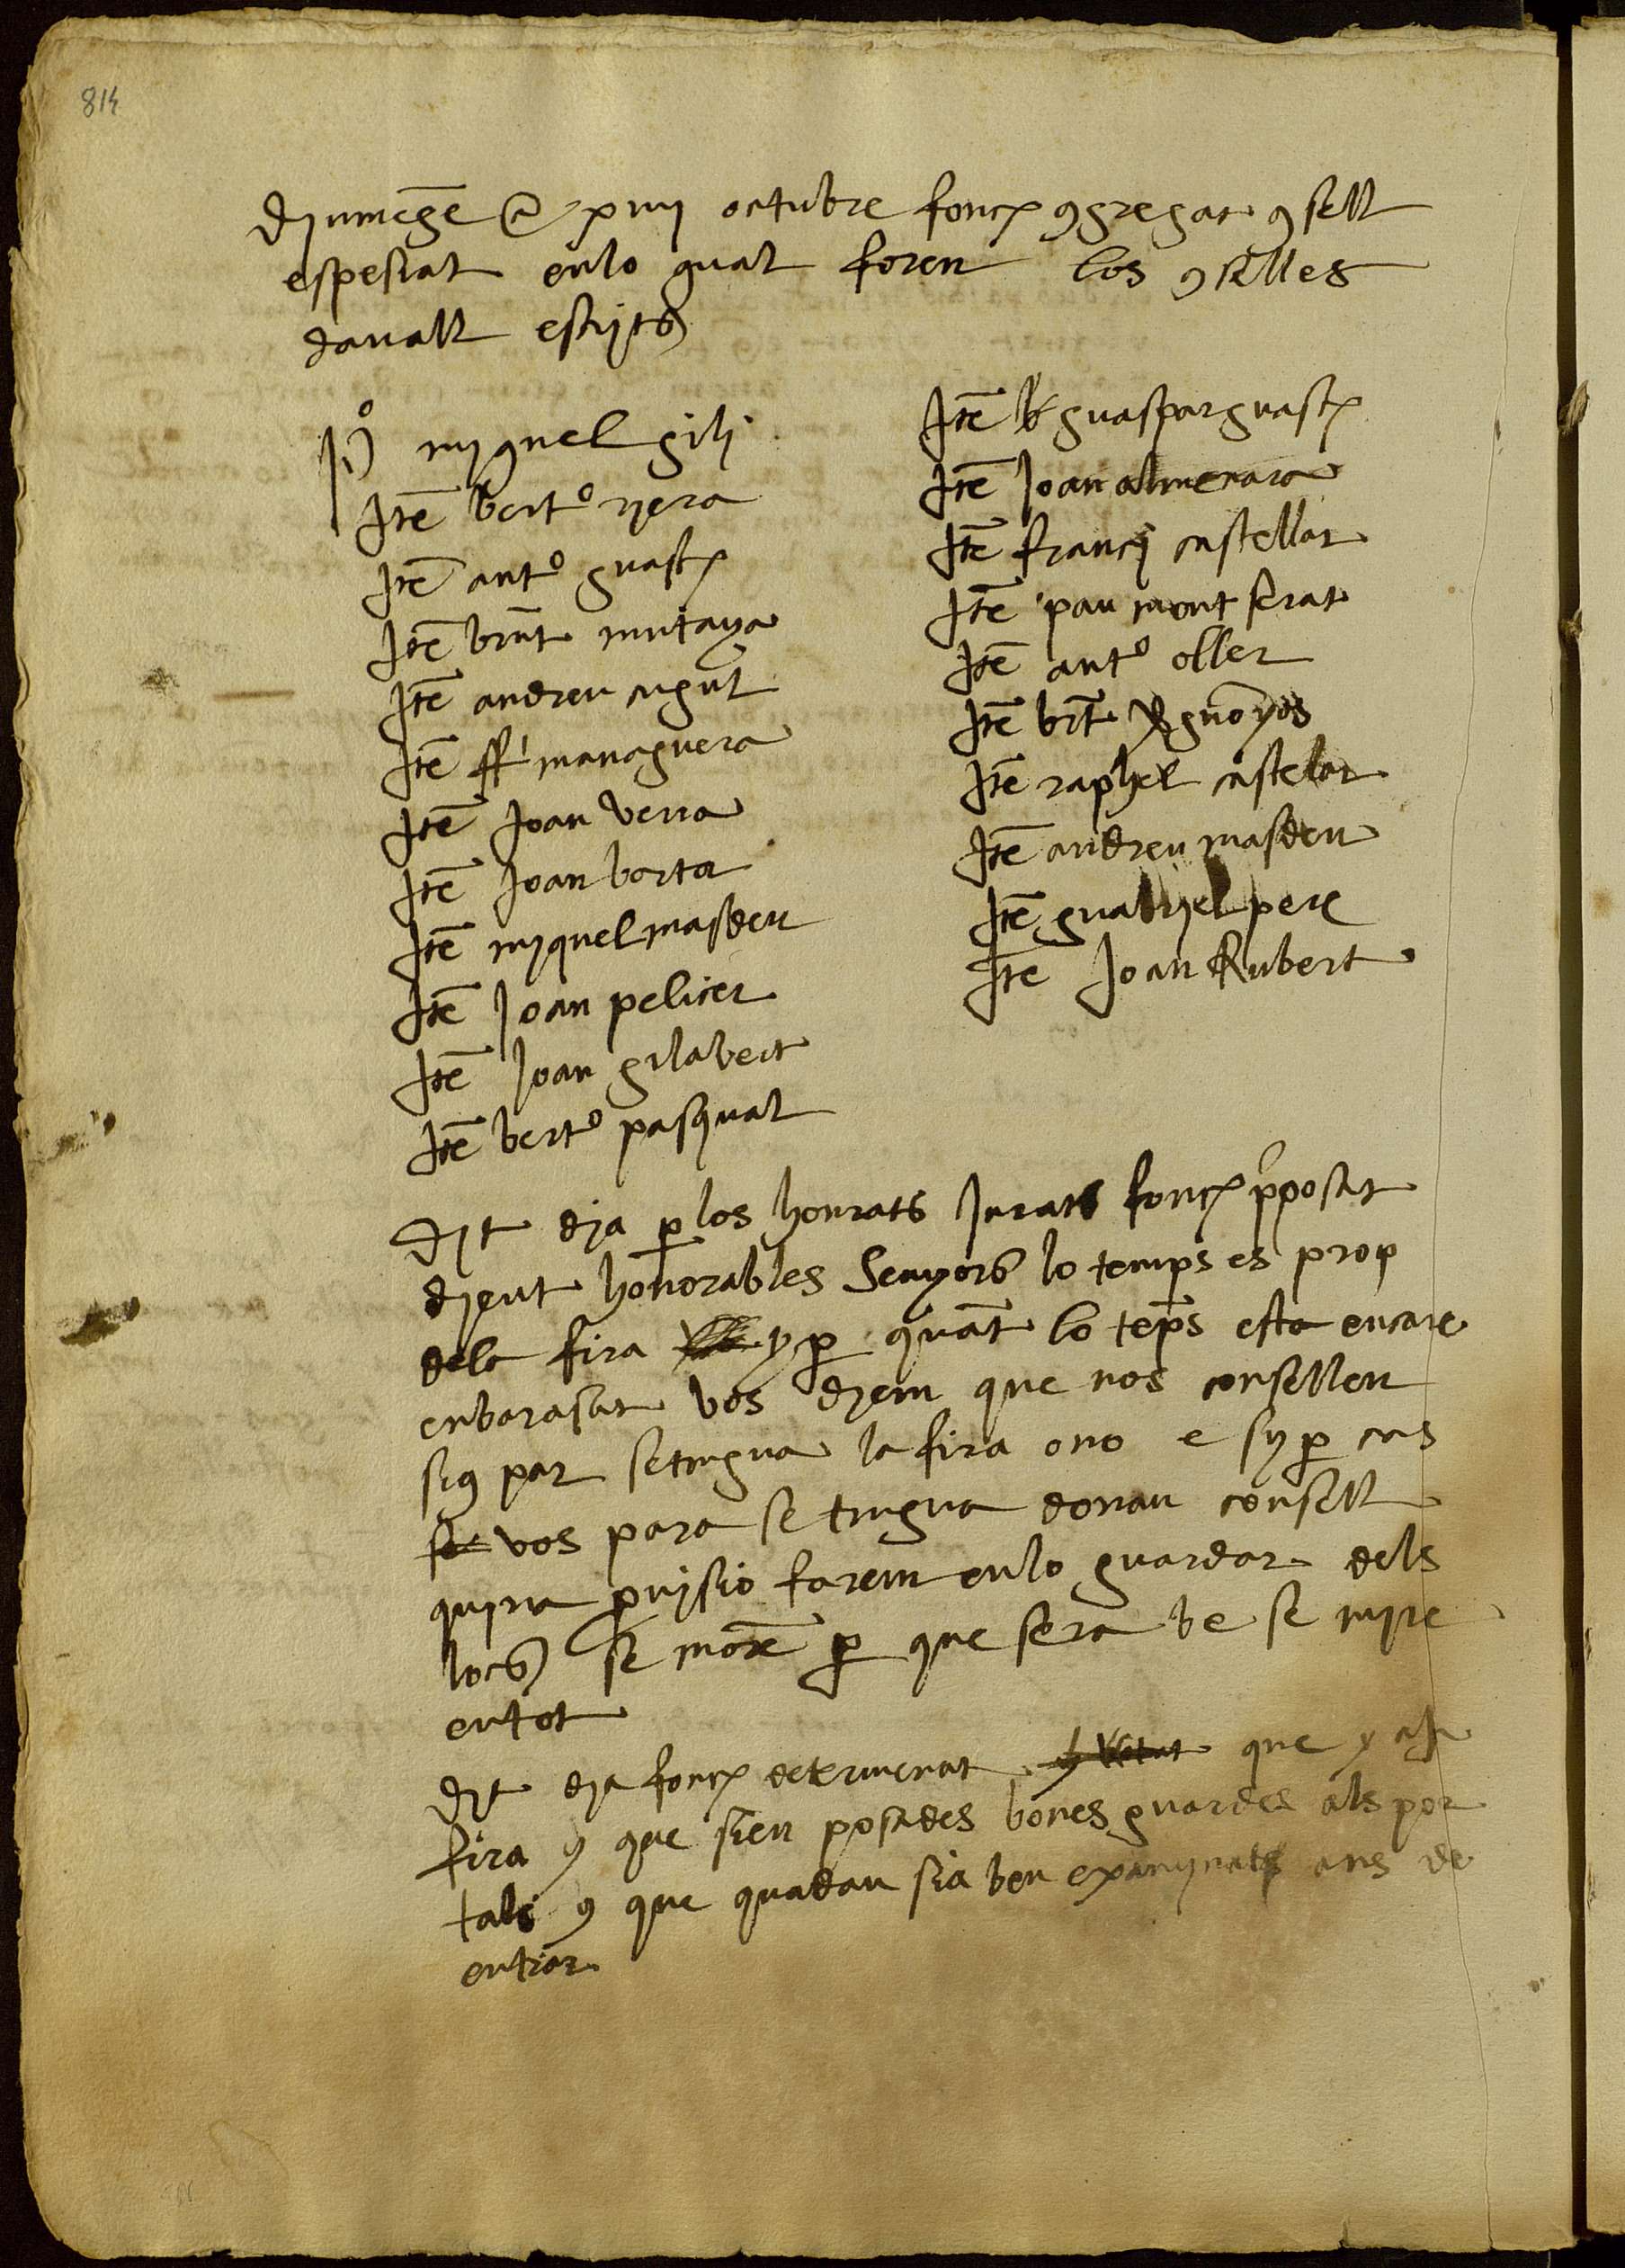 814
djumēge a xviiij octubre fonch ꝯgregat ꝯsell
espesiat enlo qual foren los ꝯselles
davall escrjts
p̊º mjquel gilj
Itē bertº rjera
Itē antº guasch
Itē brnt mutanya
Itē andreu cugul
Itē ff managuera
Itē Joan verra
Itē Joan borta
Itē mjquel masdeu
Itē Joan peliser
Itē Joan gilabert
Itē bertº pasqual
Itē guaspar guasch
Itē Joan almenara
Itē francj castellar
Itē pau mont serat
Itē antº oller
Itē brt
Itē raphel castelar
Itē andreu masdeu
Itē guabrjel pere
Itē Joan Rubert
djt dja ꝑ los honrats Jurats fonch pposat
djent honorables Senyors lo temps es prop
dela fira y ꝑ quāt lo tēps esta encare
enbarasat vos djem que nos consellen
sius par setingua la fira ono e sy ꝑ cas
se vos para se tingua donau consell
quina ꝓvisio farem enlo guardar dels
lochs se morē ꝑ que sera be se mjre
entot
djt dja fonch determenat que y aja
fira y que sien posades bones guardes als por
tals y que quadau sia ben examjnats ans de
entrar